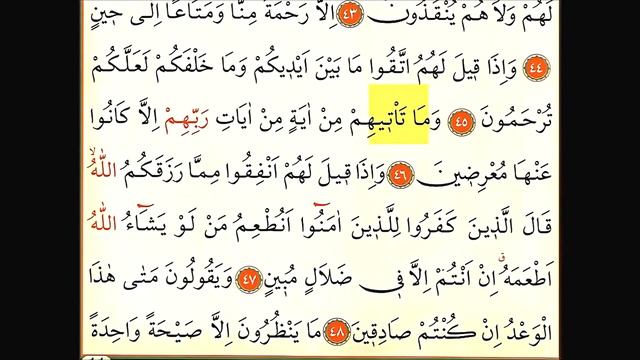 لَهُمْ وَلَا هُمْ يُنْقَذُونَ ﴿٤٣﴾ اِلَّا رَحْمَةً مِنَّا وَمَتَاعًا اِلٰى حٖينٍ
﴿٤٤﴾ وَاِذَا قٖيلَ لَهُمُ اتَّقُوا مَا بَيْنَ اَيْدٖيكُمْ وَمَا خَلْفَكُمْ لَعَلَّكُمْ
تُرْحَمُونَ ﴿٤٥﴾ وَمَا تَأْتٖيهِمْ مِنْ اٰيَةٍ مِنْ اٰيَاتِ رَبِّهِمْ اِلَّا كَانُوا
عَنْهَا مُعْرِضٖينَ ﴿٤٦﴾ وَاِذَا قٖيلَ لَهُمْ اَنْفِقُوا مِمَّا رَزَقَكُمُ اللّٰهُۙ
قَالَ الَّذٖينَ كَفَرُوا لِلَّذٖينَ اٰمَنُٓوا اَنُطْعِمُ مَنْ لَوْ يَشَٓاءُ اللّٰهُ
اَطْعَمَهُۗ اِنْ اَنْتُمْ اِلَّا فٖى ضَلَالٍ مُبٖينٍ ﴿٤٧﴾ وَيَقُولُونَ مَتٰى هٰذَا
الْوَعْدُ اِنْ كُنْتُمْ صَادِقٖينَ ﴿٤٨﴾ مَا يَنْظُرُونَ اِلَّا صَيْحَةً وَاحِدَةً